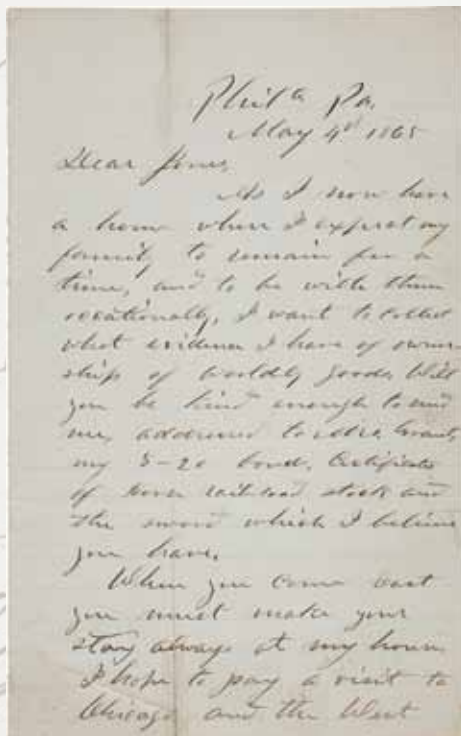 Phila Pa.
May 4th 1865
Dear Jones,
As I now have
a home where I expect my
family to remain for a
time, and to be with them
occationally, I want to collect
what evidence I have of owner-
ships of worldly goods. Will
you be kind enough to send
me, addressed to Mrs. Grant,
my 5-20 bond, Certificate
of horse railroad stock and
the sword which I believe
you have.
When you come east
you must make your
stay always at my house.
I hope to pay a visit to
Chicago and the West